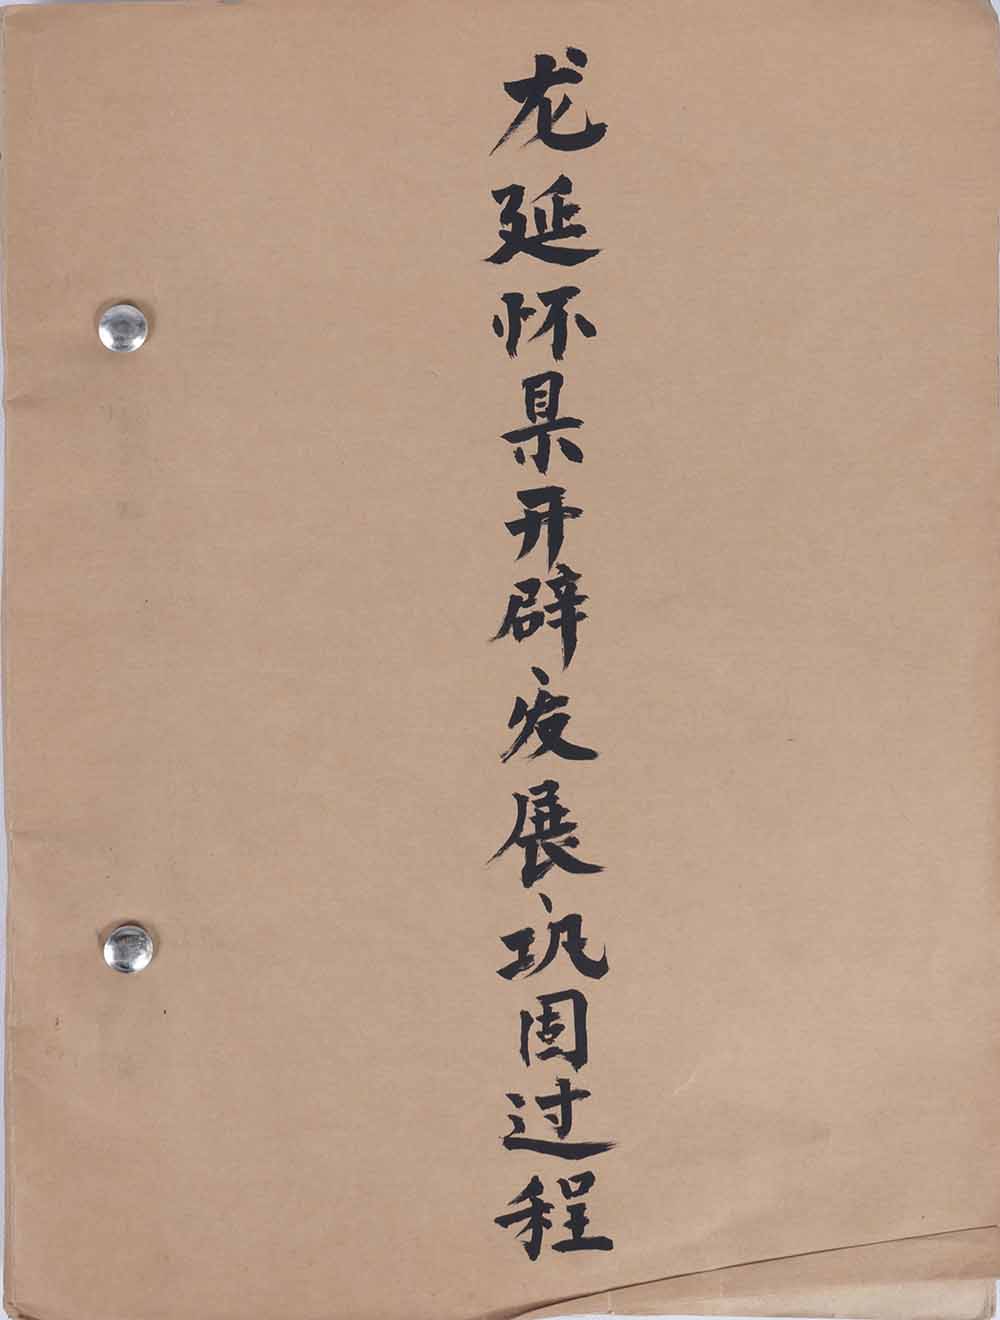 龙延怀県开辟发展巩固过程